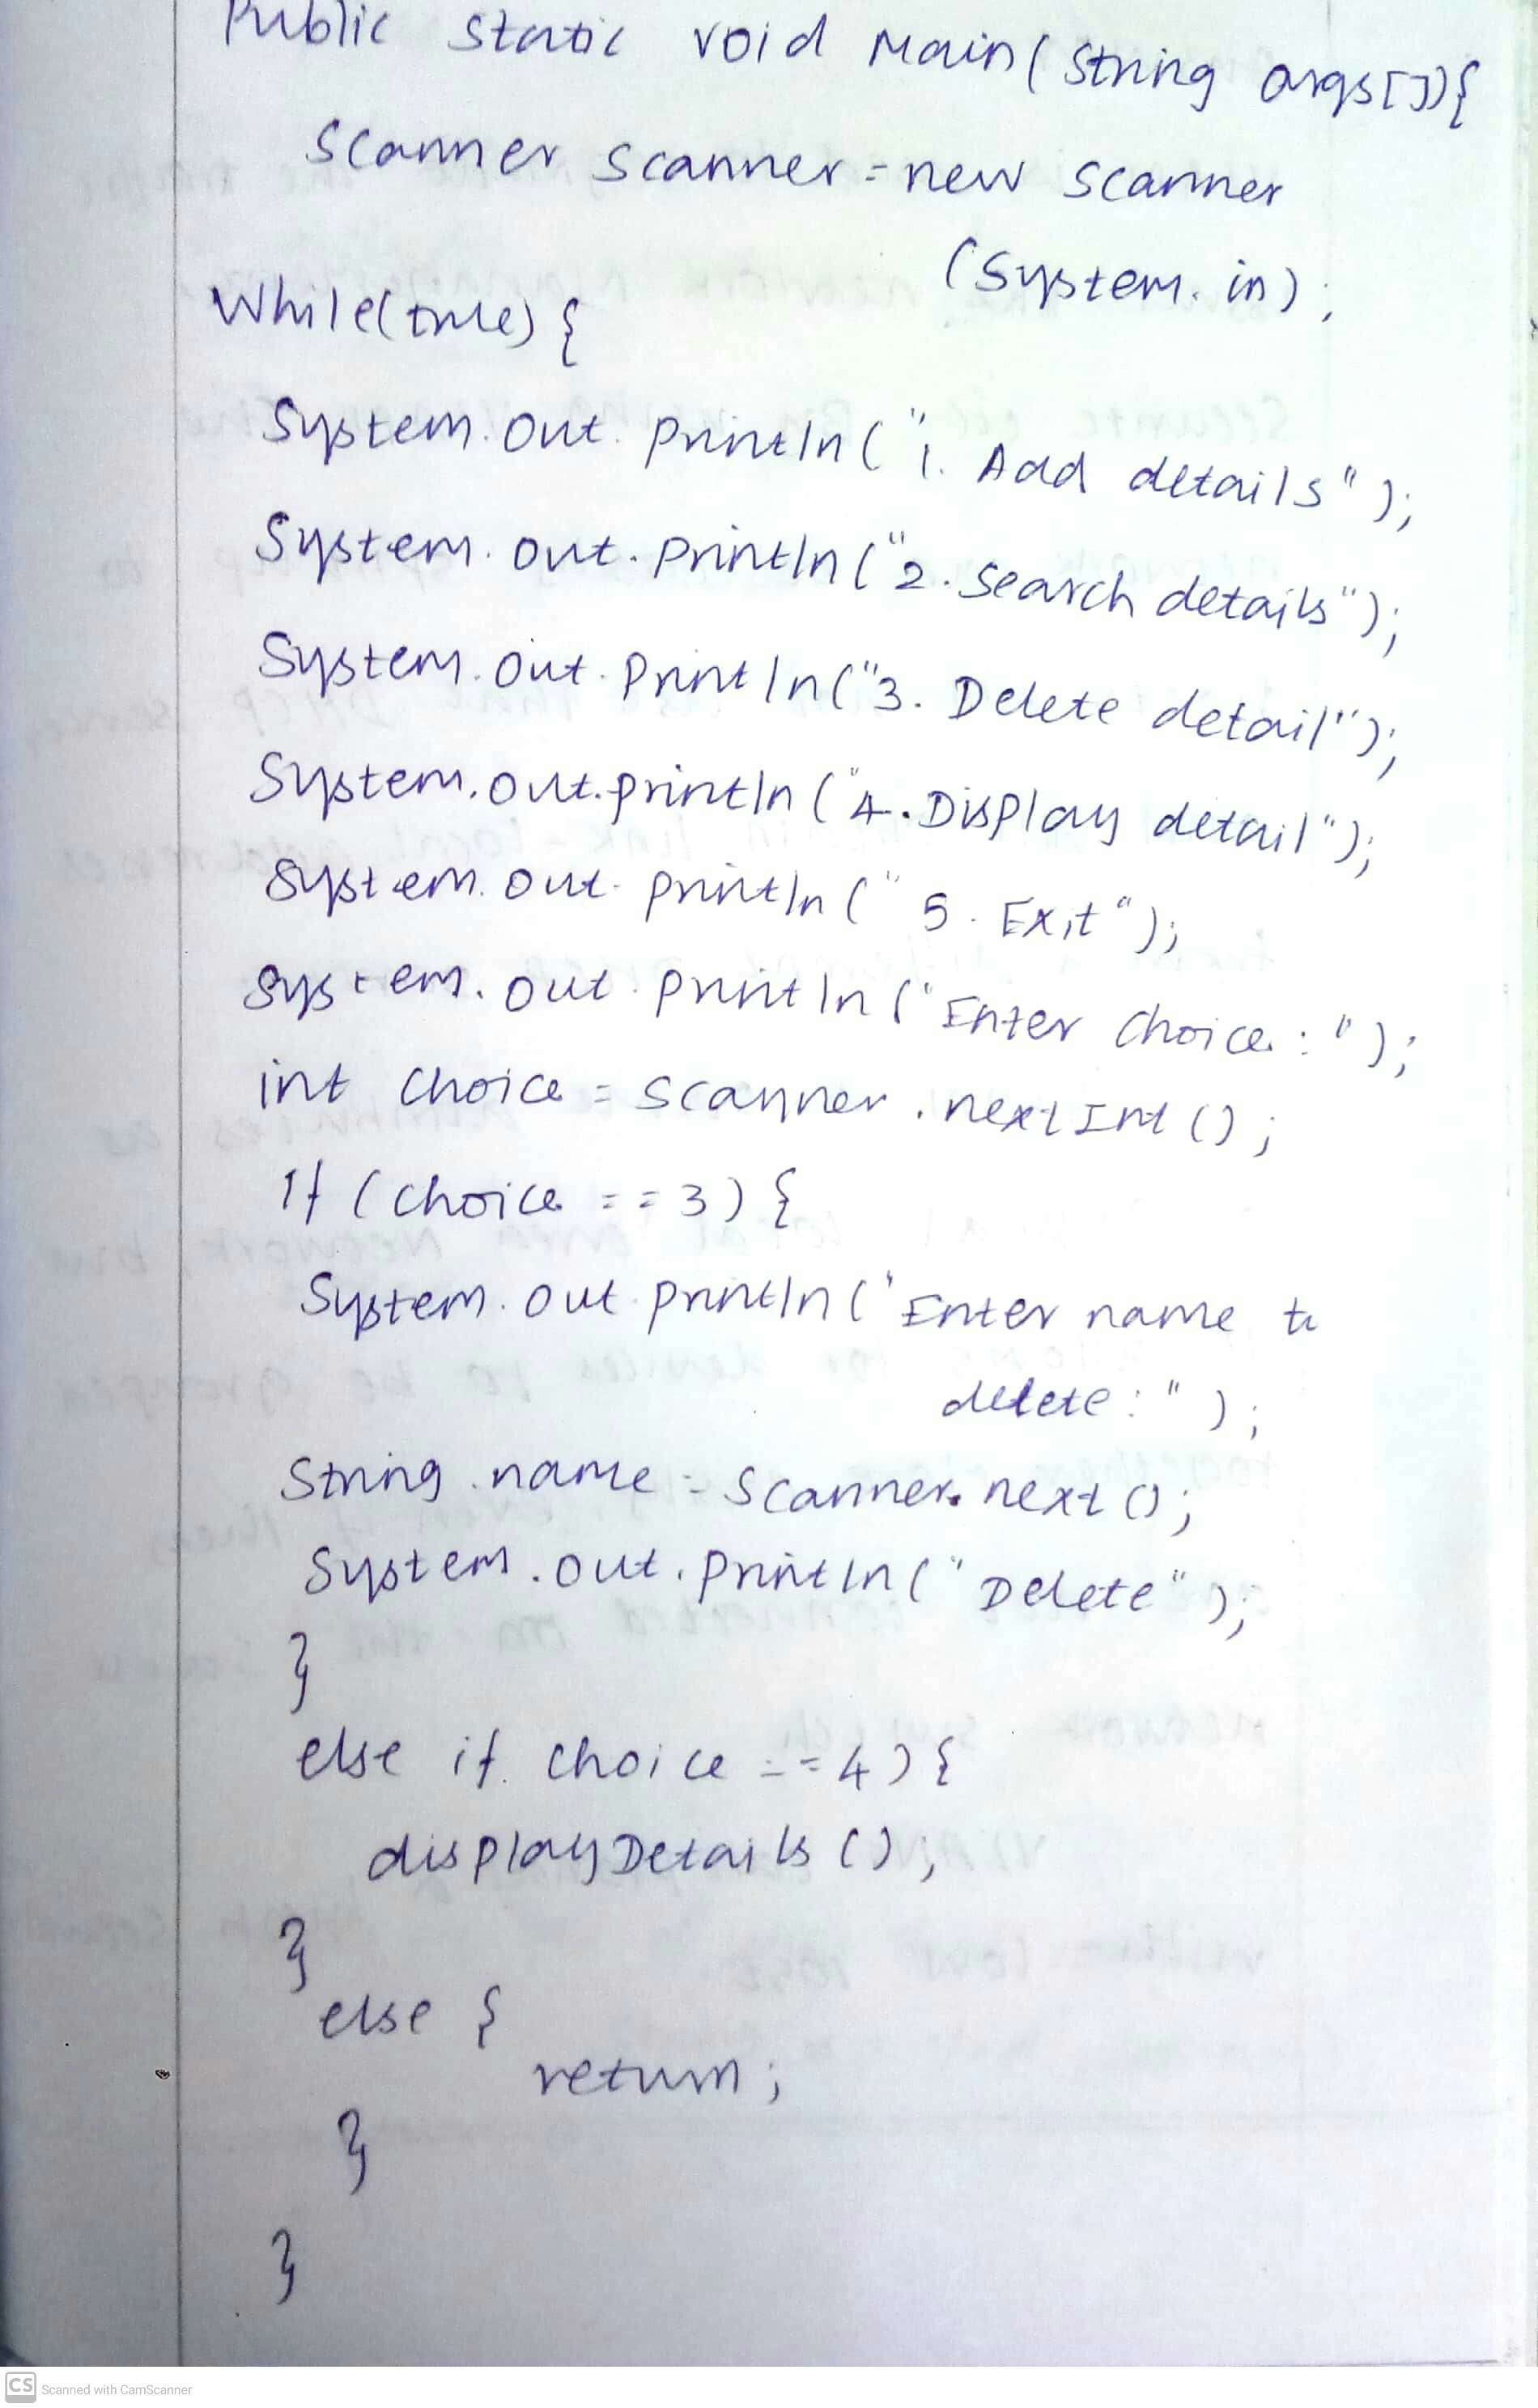 Public static void Main(String args[]){
Scanner scanner = new scanner
(System.in);
While(true){
System.out.println("1. Add details");
System.out.println("2. Search details");
System.out.println("3. Delete detail");
System.out.println("4. Display detail");
System.out.println(" 5. Exit");
System.out.println("Enter choice:");
int choice = scanner.nextInt();
If (choice == 3) {
System.out.println('Enter name to
delete:");
String name = Scanner.next();
System.out.println("Delete");
}
else if choice == 4) {
displayDetails();
}
else {
return;
}
}
CS Scanned with CamScanner